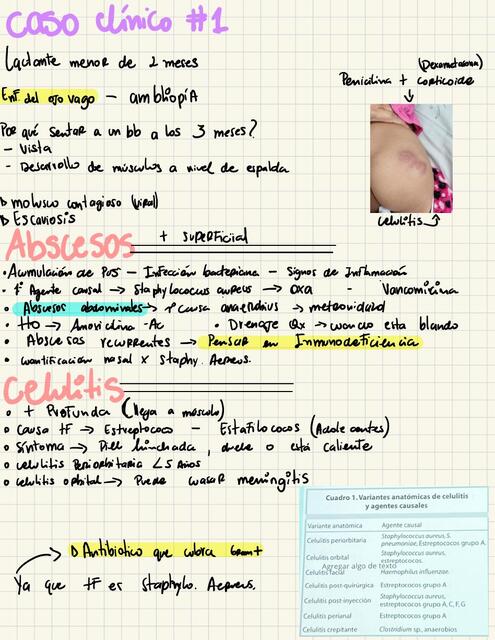 Caso clínico #1
Lactante menor de 2 meses
Enf. del ojo vago — ambliopíA
Por qué sentar a un bb a los 3 meses?
- Vista
- Desarrollo de músculos a nivel de espalda
(Dexametasona)
Penicilina + corticoide
celulitis
molusco contagioso (viral)
Escaviosis
Abscesos + superficial
• Acumulación de Pus — Infección bacteriana — Signos de Inflamación
Agente causal → Staphylococcus aureus → OXA - Vancomicina
• Abscesos abdominales → causa anaerobius →
• Tto → Amoxicilina - Ac • Drenaje Qx → cuando esta blando
• Abscesos recurrentes → Pensar en Inmunodeficiencia
• cuantificación nasal x Staphy. Aereus.
Celulitis
• + Profunda (llega a músculo)
• Causa #F → Estreptococo - Estafilococos (Adolecentes)
• Síntoma → Piel hinchada, duele o está caliente
• celulitis Periorbitaria < 5 Años
• celulitis orbital → Puede causar meningitis
Antibiotico que cubra Gram +
Ya que #F es Staphylo. Aereus.
Cuadro 1. Variantes anatómicas de celulitis
y agentes causales
Variante anatómica Agente causal
Celulitis periorbitaria Staphylococcus aureus, S.
pneumoniae, Estreptococos grupo A.
Celulitis orbital Staphylococcus aureus,
estreptococos.
Agregar algo de texto
Celulitis facial Haemophilus influenzae.
Celulitis post-quirúrgica Estreptococos grupo A
Celulitis post inyección Staphylococcus aureus,
estreptococos grupo A, C, F, G
Celulitis perianal Estreptococos grupo A
Celulitis crepitante Clostridium sp, anaerobios